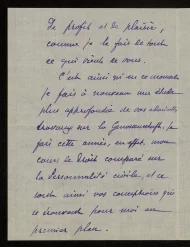 de profit et de plaisir,
comme je le fais de tout
ce qui vient de vous.
C'est ainsi qu'en ce moment
je fais à nouveau une étude
plus approfondie de vos admirables
travaux sur la Genossenschaft. Je
fais cette année, en effet, mon
cours de Droit comparé sur
la Personnalité civile, et ce
sont ainsi vos conceptions qui
se trouvent pour moi au
premier plan.